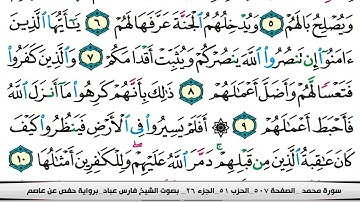 وَيُصْلِحُ بَالَهُمْ ٥ وَيُدْخِلُهُمُ ٱلْجَنَّةَ عَرَّفَهَا لَهُمْ ٦ يَـٰٓأَيُّهَا ٱلَّذِينَ
ءَامَنُوٓا۟ إِن تَنصُرُوا۟ ٱللَّهَ يَنصُرْكُمْ وَيُثَبِّتْ أَقْدَامَكُمْ ٧ وَٱلَّذِينَ كَفَرُوا۟
فَتَعْسًا لَّهُمْ وَأَضَلَّ أَعْمَـٰلَهُمْ ٨ ذَٰلِكَ بِأَنَّهُمْ كَرِهُوا۟ مَآ أَنزَلَ ٱللَّهُ
فَأَحْبَطَ أَعْمَـٰلَهُمْ ٩ ۞ أَفَلَمْ يَسِيرُوا۟ فِى ٱلْأَرْضِ فَيَنظُرُوا۟ كَيْفَ
كَانَ عَـٰقِبَةُ ٱلَّذِينَ مِن قَبْلِهِمْ ۚ دَمَّرَ ٱللَّهُ عَلَيْهِمْ ۖ وَلِلْكَـٰفِرِينَ أَمْثَـٰلُهَا ١٠
سورة محمد _الصفحة ٥٠٧_الحزب ٥١_الجزء ٢٦_ بصوت الشيخ فارس عباد_برواية حفص عن عاصم